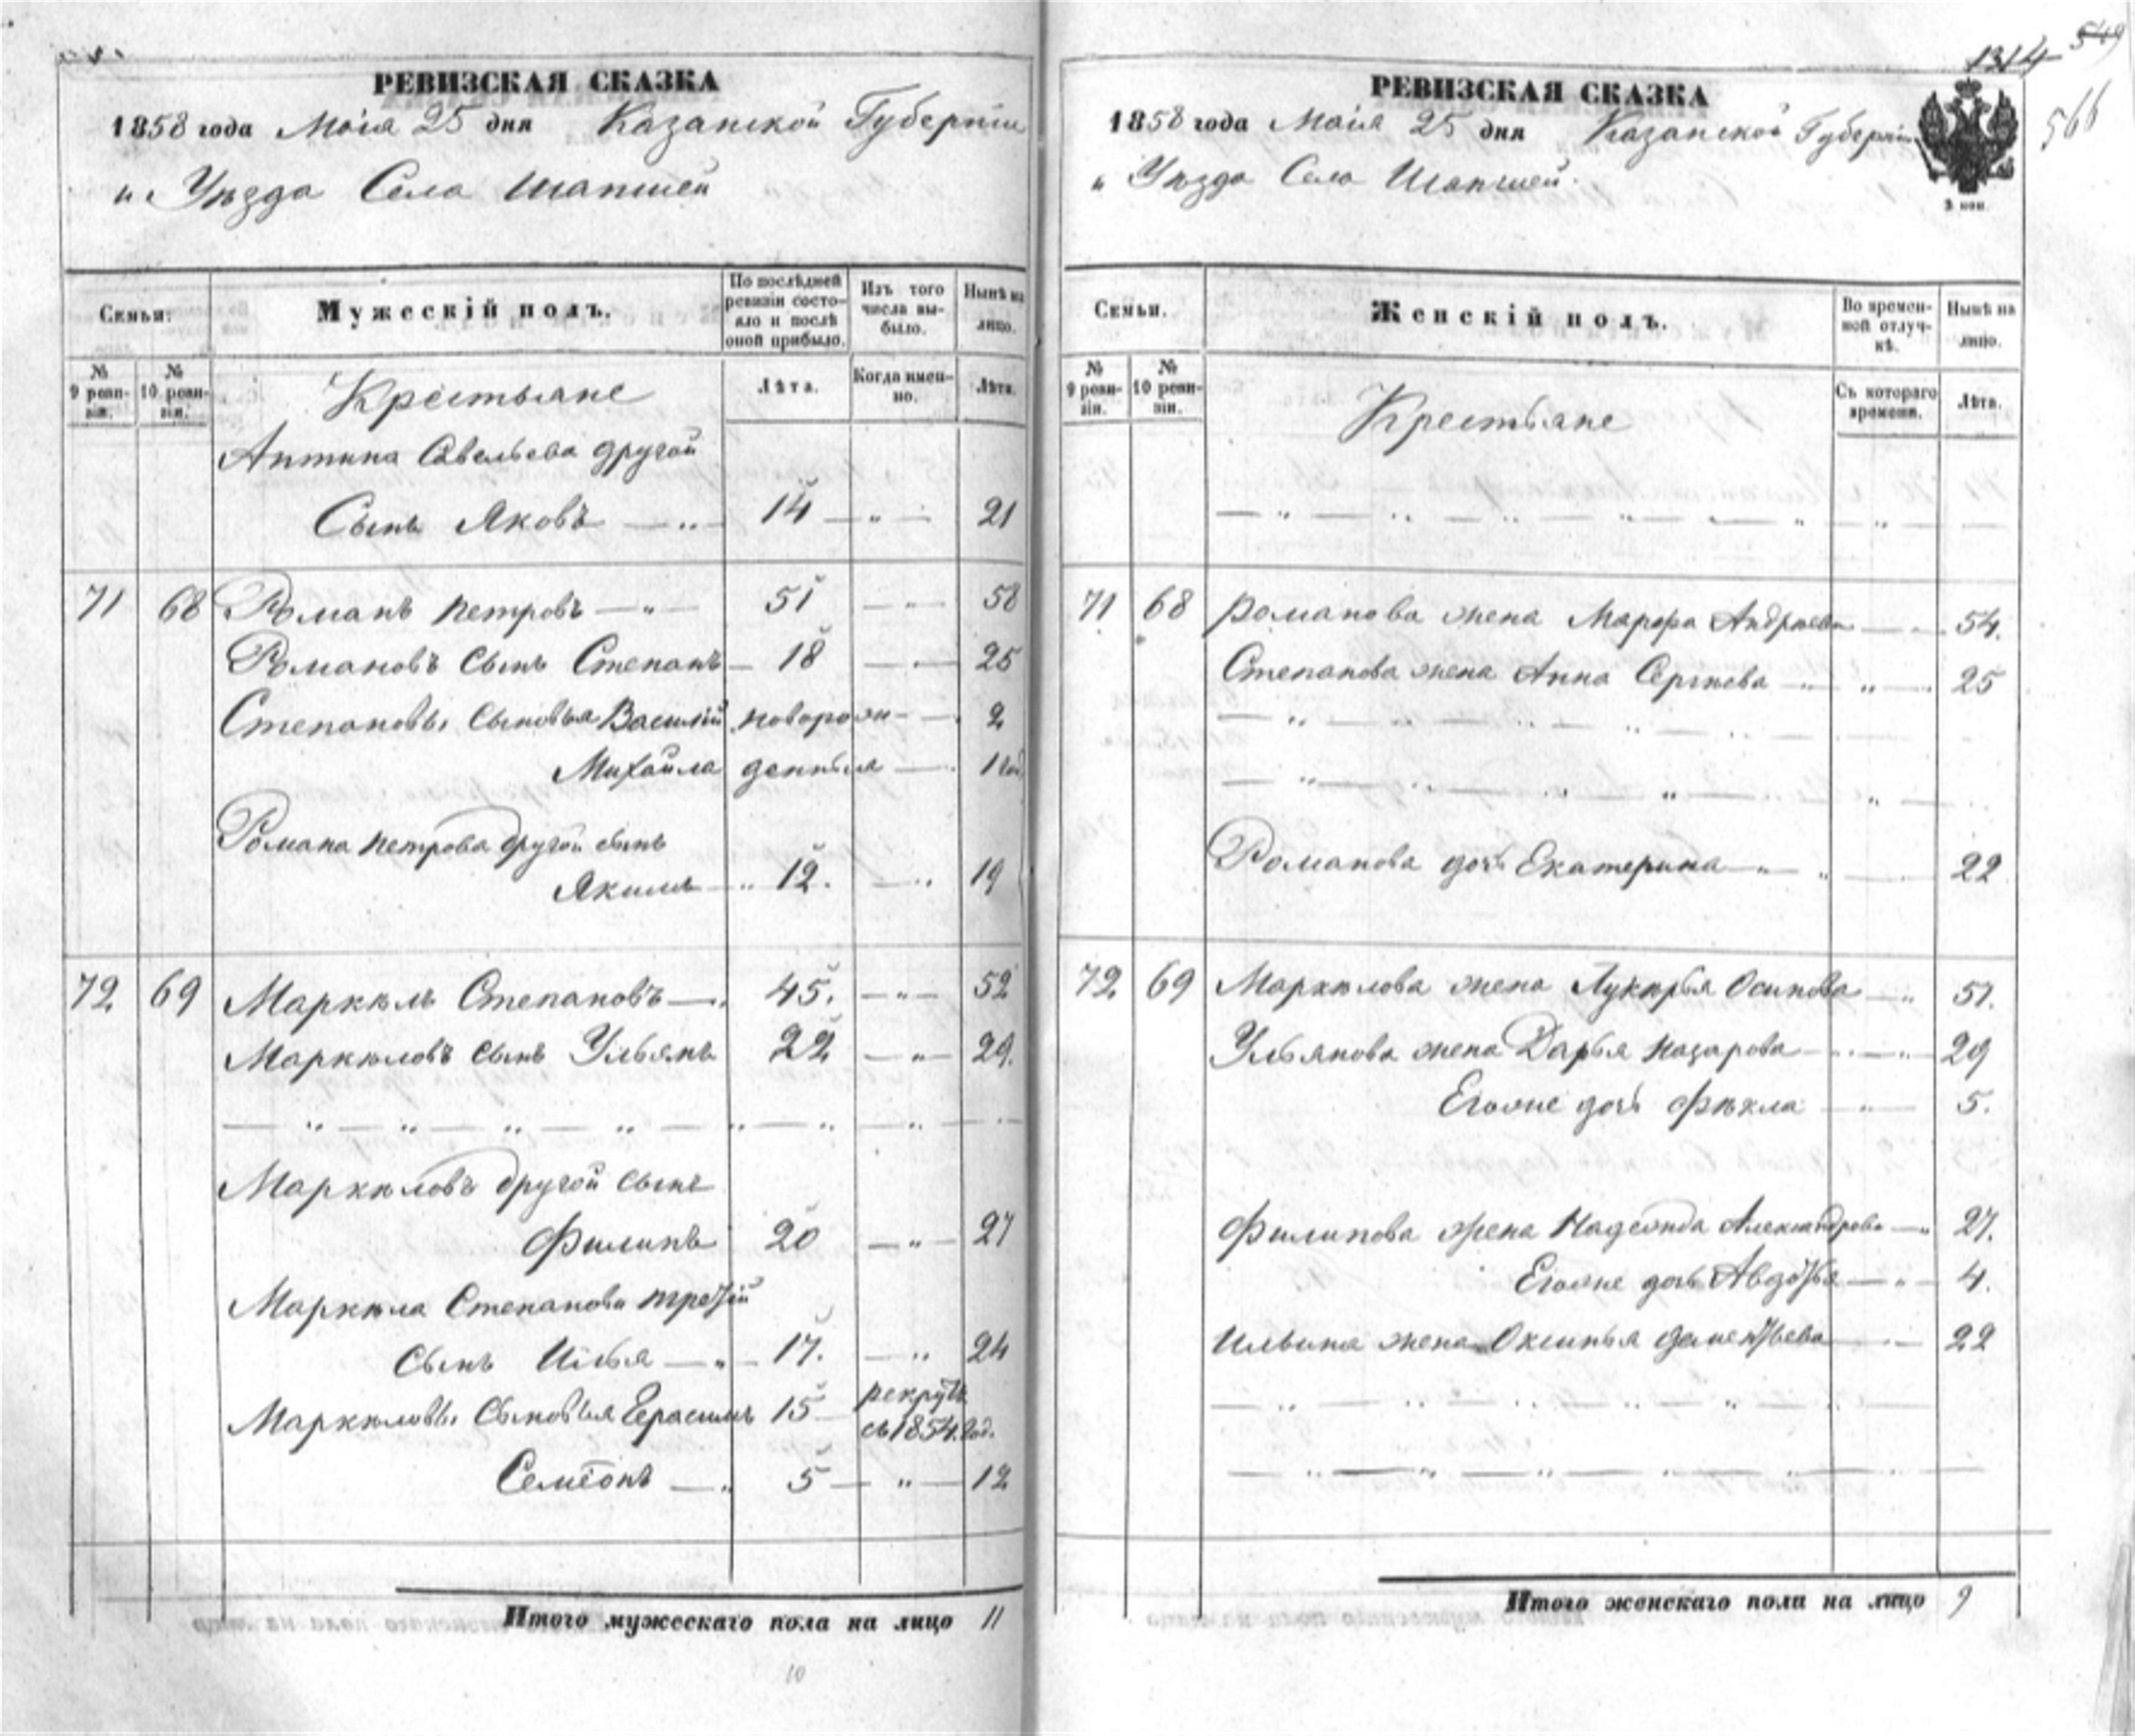 РЕВИЗСКАЯ СКАЗКА
1858 года Маія 25 дня Казанской Губерніи
и Уѣзда Села Шапшей
Семьи:
Мужескій полъ.
По послѣдней ревизіи состояло и послѣ оной прибыло.
Изъ того числа выбыло.
Нынѣ на лицо.
№ 9 ревизіи.
№ 10 ревизіи.
Лѣта.
Когда именно.
Лѣта.
Крестьяне
Антипа Савельева другой
Сынъ Яковъ — 14 — „ — 21
71 68 Романъ Петровъ — „ — 51 — „ — 58
Романовъ сынъ Степанъ — 18 — „ — 25
Степановы сыновья Василій новорож- — 2
Михайла денныя — 1 год.
Романа Петрова другой сынъ
Якимъ — „ 12. — „ 19
72 69 Маркелъ Степановъ — „ 45. — „ — 52
Маркѣловъ сынъ Ульянъ 22 — „ — 29.
— „ — „ — „ — „ — „ — „ — „ —
Маркѣловъ другой сынъ
Филипъ 20 — „ — 27
Маркѣла Степанова третій
сынъ Илья — „ — 17. — „ 24
Маркѣловы сыновья Герасимъ 15 рекрутъ
съ 1854. год.
Семёонъ — „ 5 — „ — 12
Итого мужескаго пола на лицо 11
10
1314 549
566
РЕВИЗСКАЯ СКАЗКА
1858 года Маія 25 дня Казанской Губерніи
и Уѣзда Села Шапшей.
3 коп.
Семьи.
Женскій полъ.
Во временной отлучкѣ.
Нынѣ на лицо.
№ 9 ревизіи.
№ 10 ревизіи.
Съ котораго времени.
Лѣта.
Крестьяне
— „ — „ — „ — „ — „ — „ — „ —
71 68 Романова жена Марфа Андреева — 54.
Степанова жена Анна Сергѣева — „ — „ — 25
— „ — „ — „ — „ —
— „ — „ — „ — „ — „ —
Романова дочь Екатерина — „ — „ — 22
72 69 Маркѣлова жена Лукерья Осипова — „ 51.
Ульянова жена Дарья Назарова — „ — „ 29
Егожне дочь Фѣкла — „ — 5.
Филипова жена Надежда Александрова — „ 27.
Егожне дочь Авдотья — „ — 4.
Ильина жена Оксинья Дементьева — „ — 22
— „ — „ — „ — „ — „ — „ —
— „ — „ — „ — „ — „ — „ —
Итого женскаго пола на лицо 9